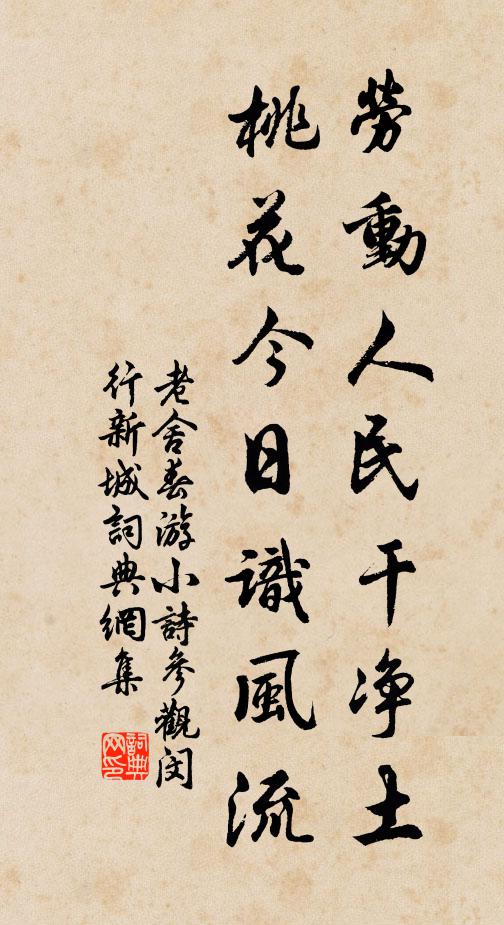 勞動人民干净土
桃花今日識風流
老舍春游小詩參觀闵
行新城詞典網集
詞典
网印